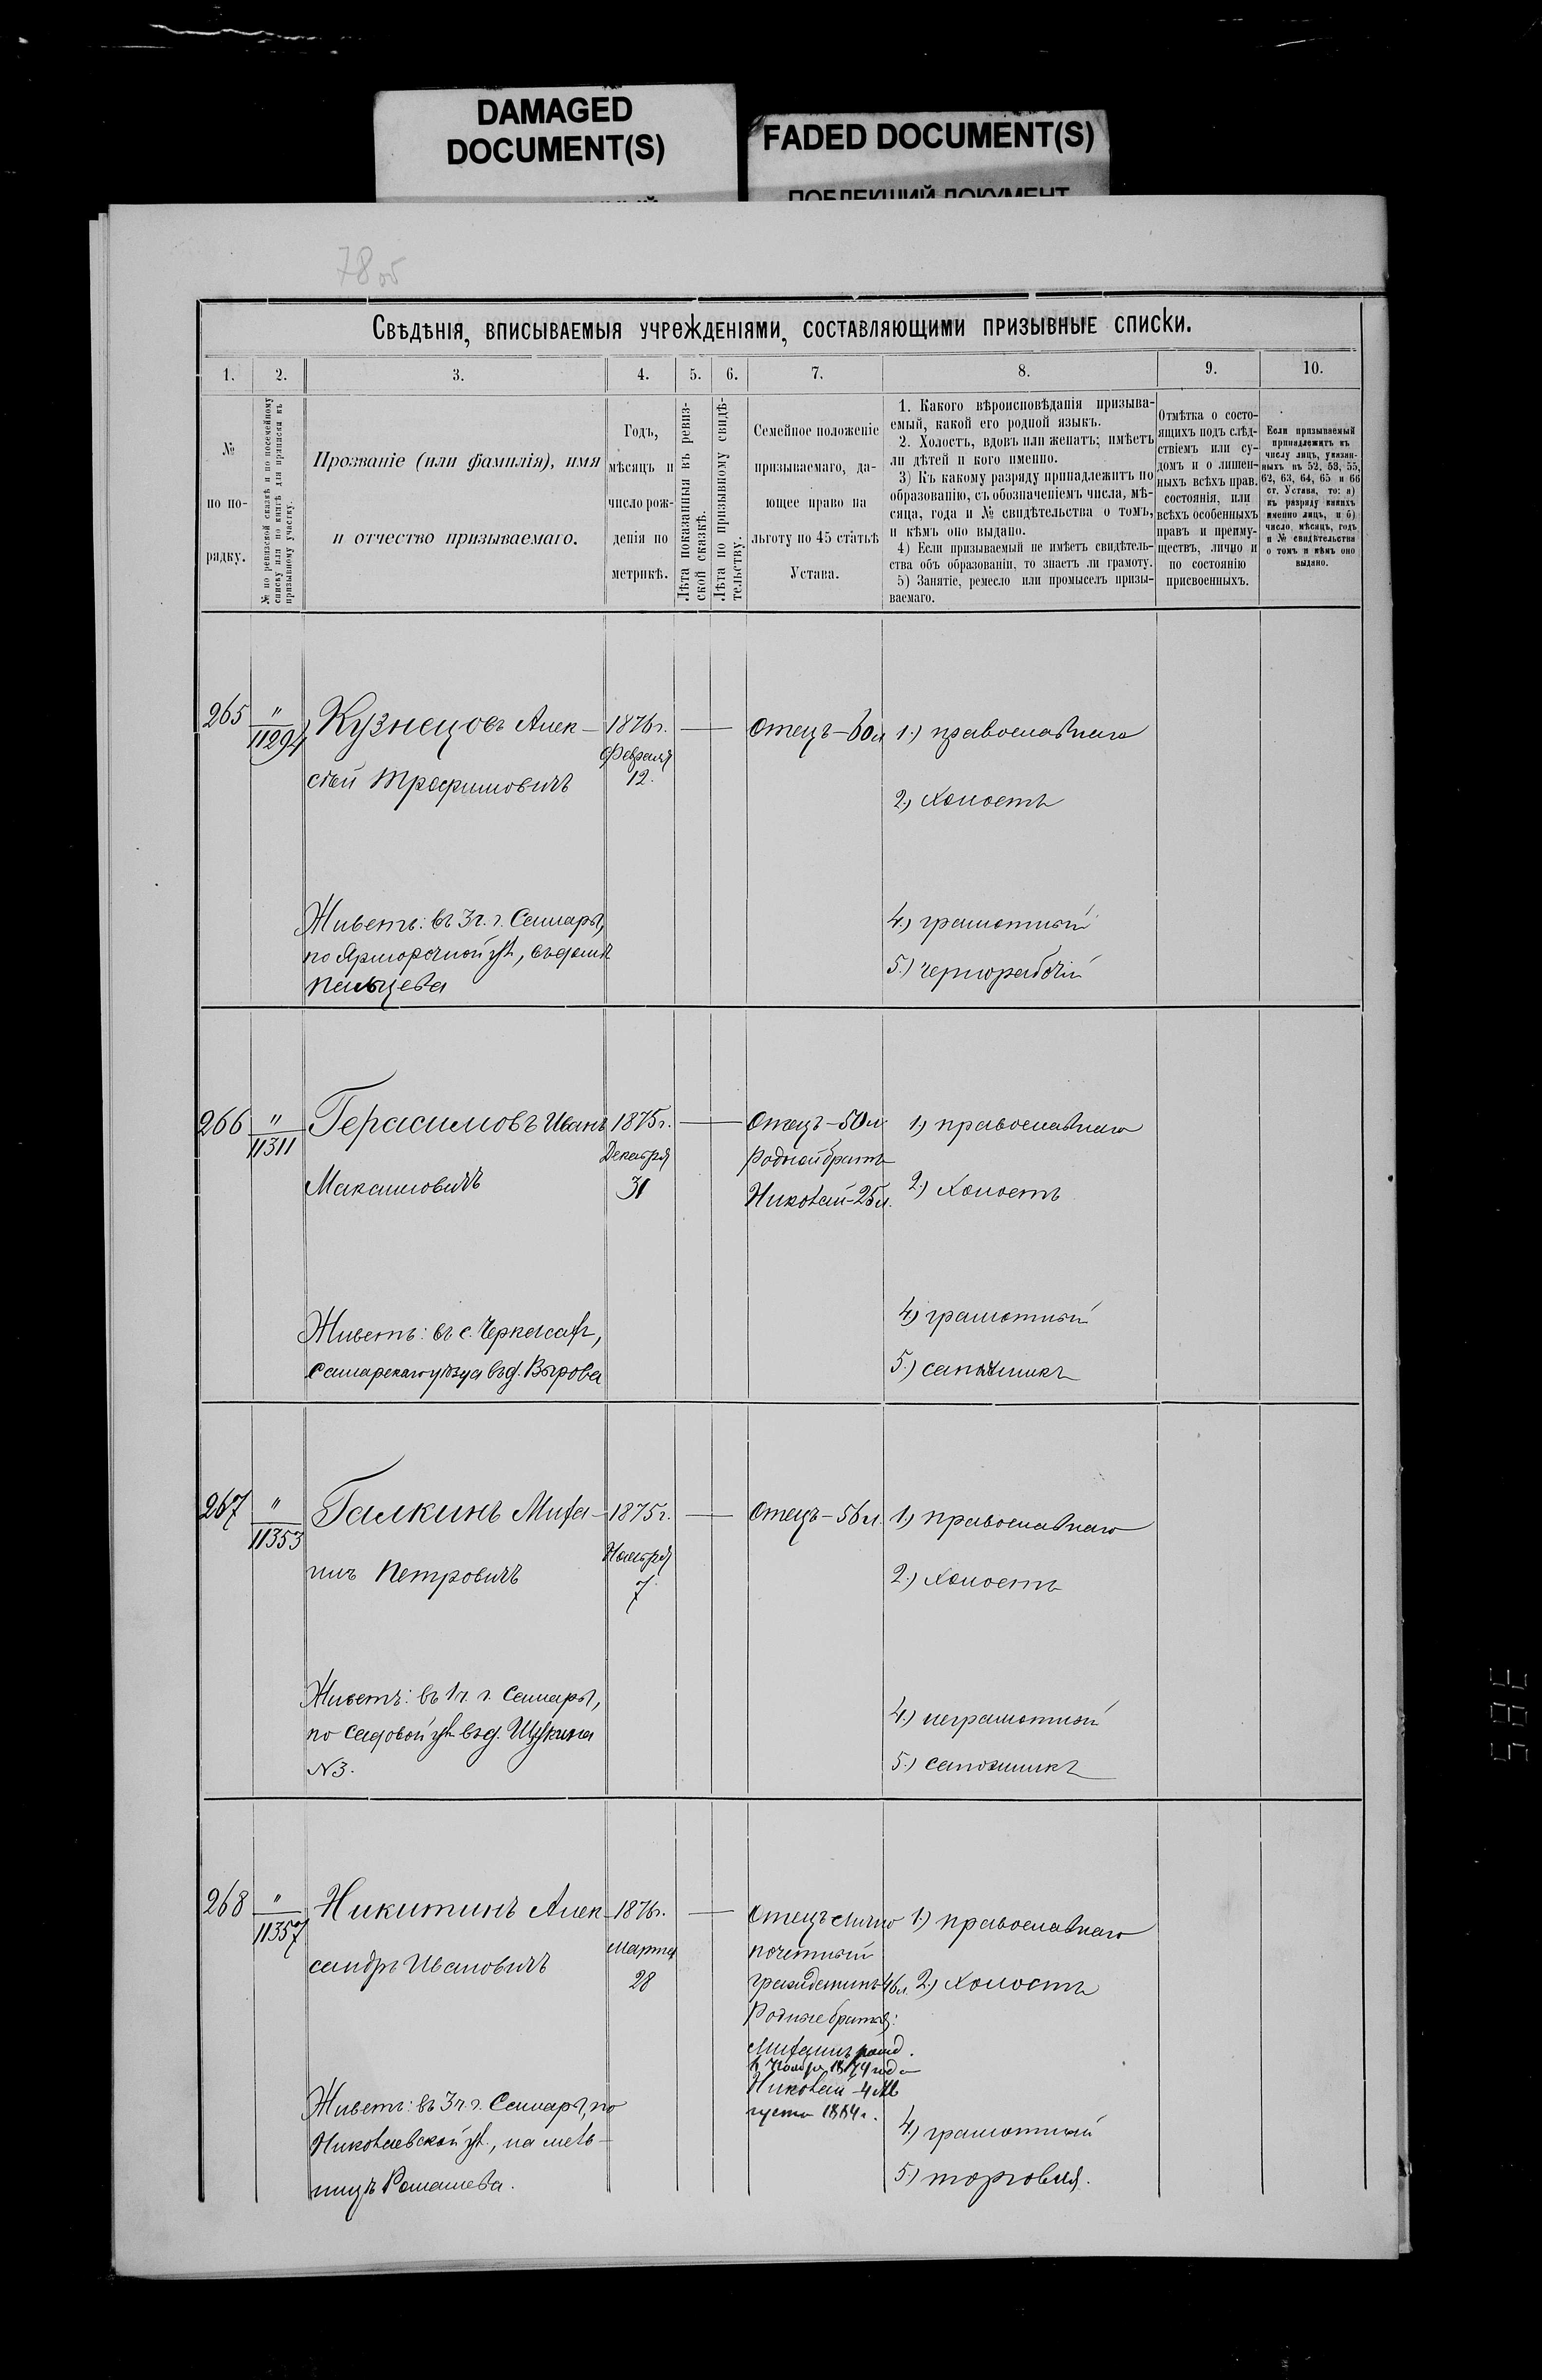 DAMAGED
DOCUMENT(S)
FADED DOCUMENT(S)
ПОБЛЕКШИЙ ДОКУМЕНТ
78об
Свѣдѣнія, вписываемыя учрежденіями, составляющими призывные списки.
1. 2. 3. 4. 5. 6. 7. 8. 9. 10.
№
по по-
рядку.
№ по ревизской сказкѣ и по посемейному
списку или по книгѣ для приписки къ
призывному участку.
Прозваніе (или фамилія), имя
и отчество призываемаго.
Годъ,
мѣсяцъ и
число рож-
денія по
метрикѣ.
Лѣта показанныя въ ревиз-
ской сказкѣ.
Лѣта по призывному свидѣ-
тельству.
Семейное положеніе
призываемаго, да-
ющее право на
льготу по 45 статьѣ
Устава.
1. Какого вѣроисповѣданія призыва-
емый, какой его родной языкъ.
2. Холостъ, вдовъ или женатъ; имѣетъ
ли дѣтей и кого именно.
3) Къ какому разряду принадлежитъ по
образованію, съ обозначеніемъ числа, мѣ-
сяца, года и № свидѣтельства о томъ,
и кѣмъ оно выдано.
4) Если призываемый не имѣетъ свидѣтель-
ства объ образованіи, то знаетъ ли грамоту.
5) Занятіе, ремесло или промыселъ призы-
ваемаго.
Отмѣтка о состо-
ящихъ подъ слѣд-
ствіемъ или су-
домъ и о лишен-
ныхъ всѣхъ прав.
состоянія, или
всѣхъ особенныхъ
правъ и преиму-
ществъ, лично и
по состоянію
присвоенныхъ.
Если призываемый
принадлежитъ къ
числу лицъ, указан-
ныхъ въ 52, 53, 55,
62, 63, 64, 65 и 66
ст. Устава, то: а)
къ разряду какихъ
именно лицъ, и б)
число, мѣсяцъ, годъ
и № свидѣтельства
о томъ и кѣмъ оно
выдано.
265
"
11294
Кузнецовъ Алек-
сѣй Трофимовичъ
Живетъ: въ 3 ч. г. Самары,
по Ярморочной ул, въ домѣ
Пальцева
1876 г.
Февраля
12.
Отецъ-60 л
1.) православнаго
2.) холостъ
4.) грамотный
5.) чернорабочій
266
"
11311
Герасимовъ Иванъ
Максимовичъ
Живетъ: въ с. Черкасах,
Самарскаго уѣзда въ д. Вырова
1875 г.
Декабря
31
Отецъ-50 л.
Родной братъ
Николай-25 л.
1.) православнаго
2.) холостъ
4.) грамотный
5.) сапожникъ
267
"
11353
Галкинъ Миха-
илъ Петровичъ
Живетъ: въ 1 ч. г. Самары,
по Садовой ул въ д. Щукина
№ 3.
1875 г.
Ноября
7
Отецъ-56 л.
1.) православнаго
2.) холостъ
4.) неграмотный
5.) сапожникъ
268
"
11357
Никитинъ Алек-
сандръ Ивановичъ
Живетъ: въ 3 ч. г. Самары, по
Николаевской ул., на мель-
ницѣ Ромашева.
1876 г.
Марта
28
Отецъ лично
почетный
гражданинъ-46 л.
Родные братья:
Михаилъ рожд.
Ноября года
Николай-4 Ав
густа 1884 г.
1.) православнаго
2.) холостъ
4.) грамотный
5.) торговля.
785